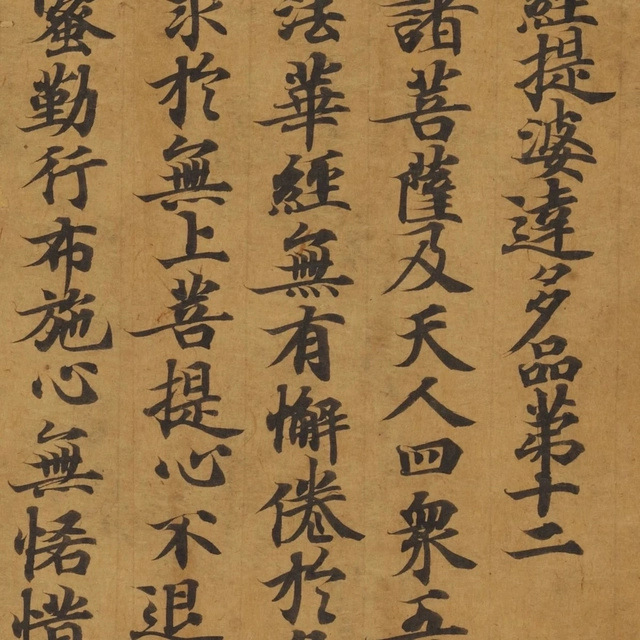 經提婆達多品第十二
諸菩薩及天人四衆五
法華經無有懈倦於
求於無上菩提心不退
蜜勤行布施心無悋惜